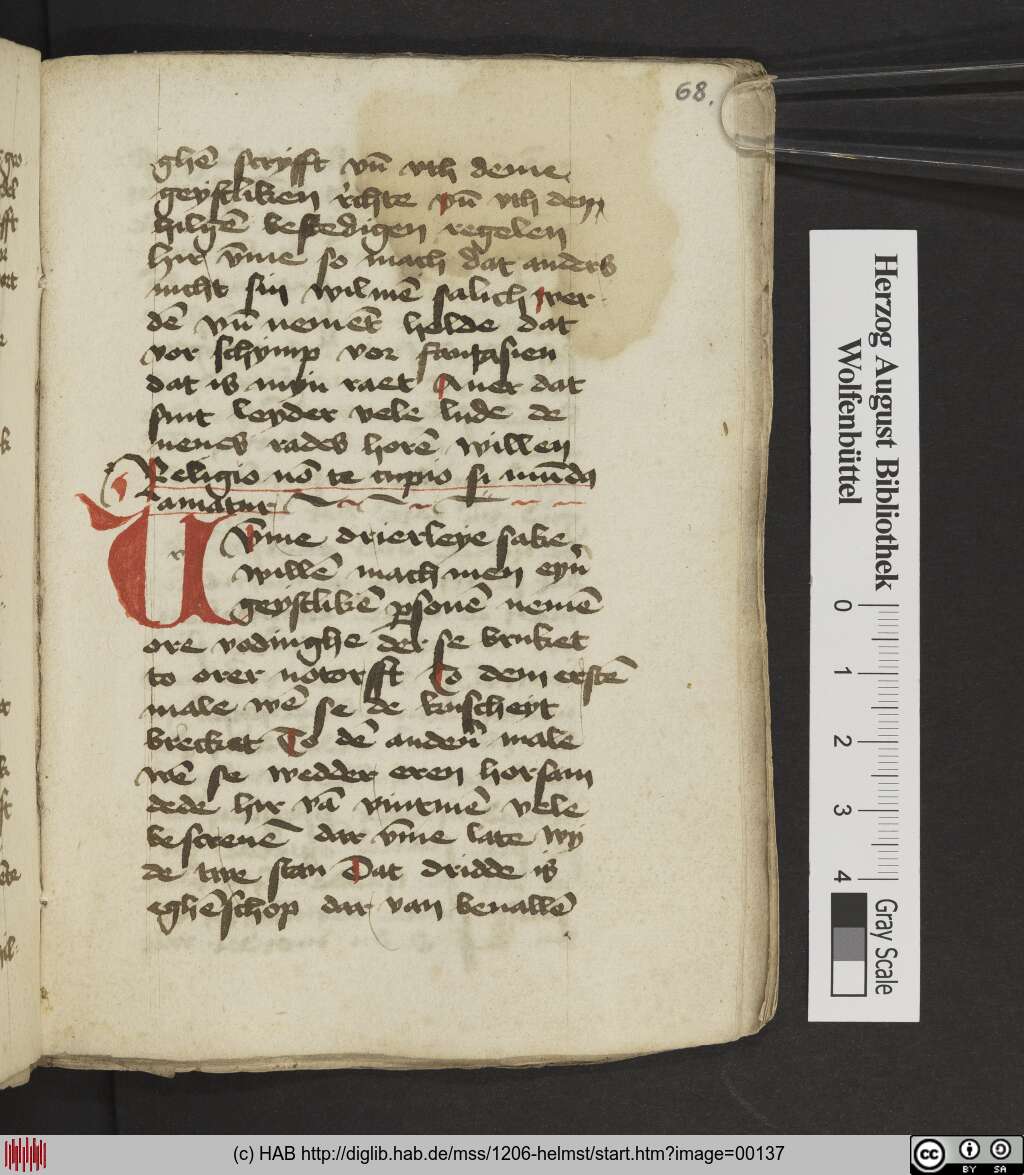 68.
ghē scryfft vn̄ vth deme
geystliken rechte vn̄ vth dem
hilgē bestedigen regelen
hir vm̄e so mach dat anders
nicht sin wilmē salich wer
dē vn̄ nemēt helde dat
vor schymp vor fantasien
dat is myn raet Auer dat
sint leyder vele lude de
nenes rades horē willen
Religio nō te cupio si mūda
amatur
Vm̄e drierleye sake
willē mach men eyn̄
geystlikē ꝑsonē nemē
ore vodinghe der se bruket
to orer notorfft To dem erstē
male wē se de kuscheyt
brecket To dē anderū male
wē se wedder eren horsam
dede hir vā vintmē vele
bescreuē dar vm̄e late wy
de twe stan Dat dridde is
eghēschop dar van benallē
Herzog August Bibliothek
Wolfenbüttel
0 1 2 3 4
Gray Scale
(c) HAB http://diglib.hab.de/mss/1206-helmst/start.htm?image=00137
cc BY SA